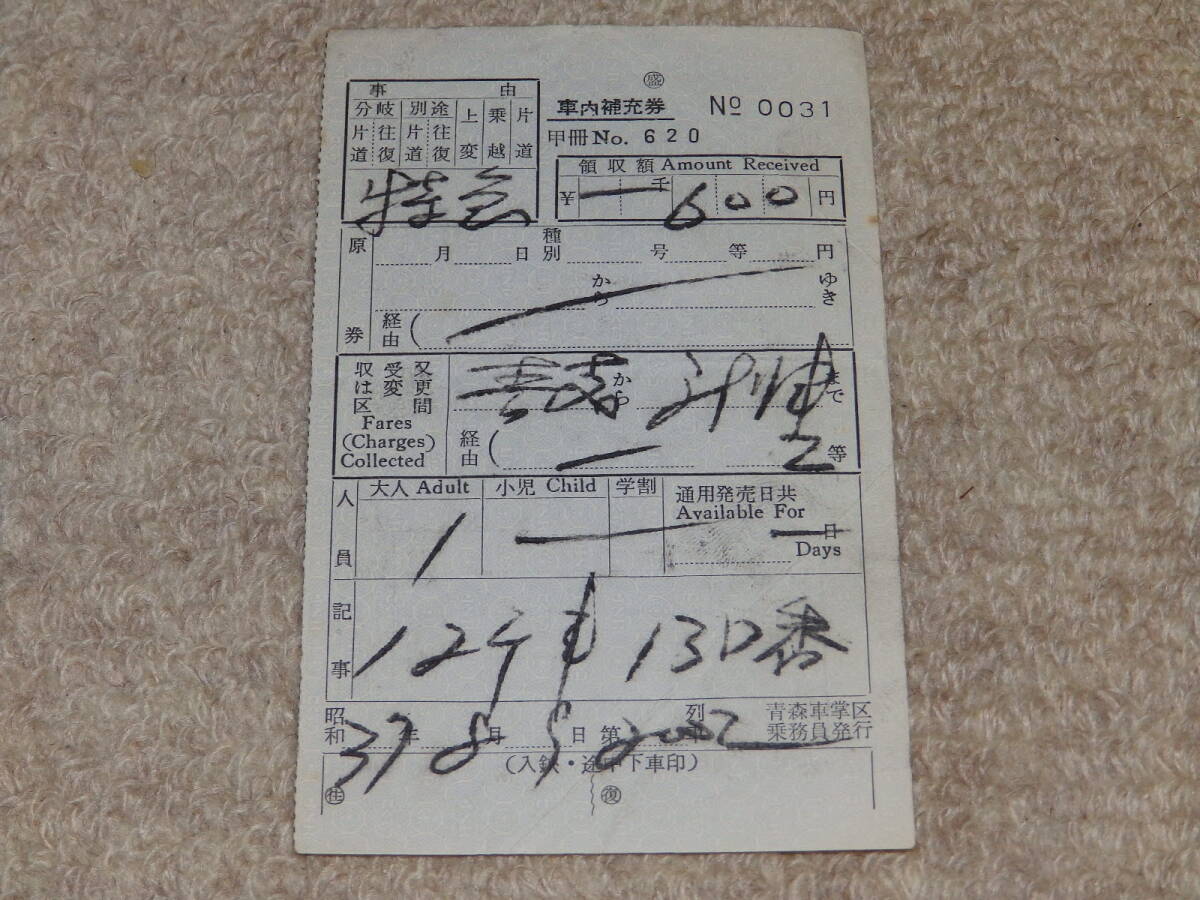 ㊿
事由
車内補充券 No 0031
分岐 別途 上変 乗越 片道
片道 往復 片道 往復
甲冊No. 620
領収額 Amount Received
¥ 一 千 600 円
特急
原券 月 日 種別 号 等 円
から ゆき
経由 (
収受又は変更区間 から まで
Fares
(Charges)
Collected
経由 ( 一 2 等
人員 大人 Adult 小児 Child 学割 通用発売日共
Available For
1 日
Days
記事 12号車 13D番
昭和 37年 8月 9日 第2002列車 青森車掌区
乗務員発行
(入鋏・途中下車印)
㊟ ㊝